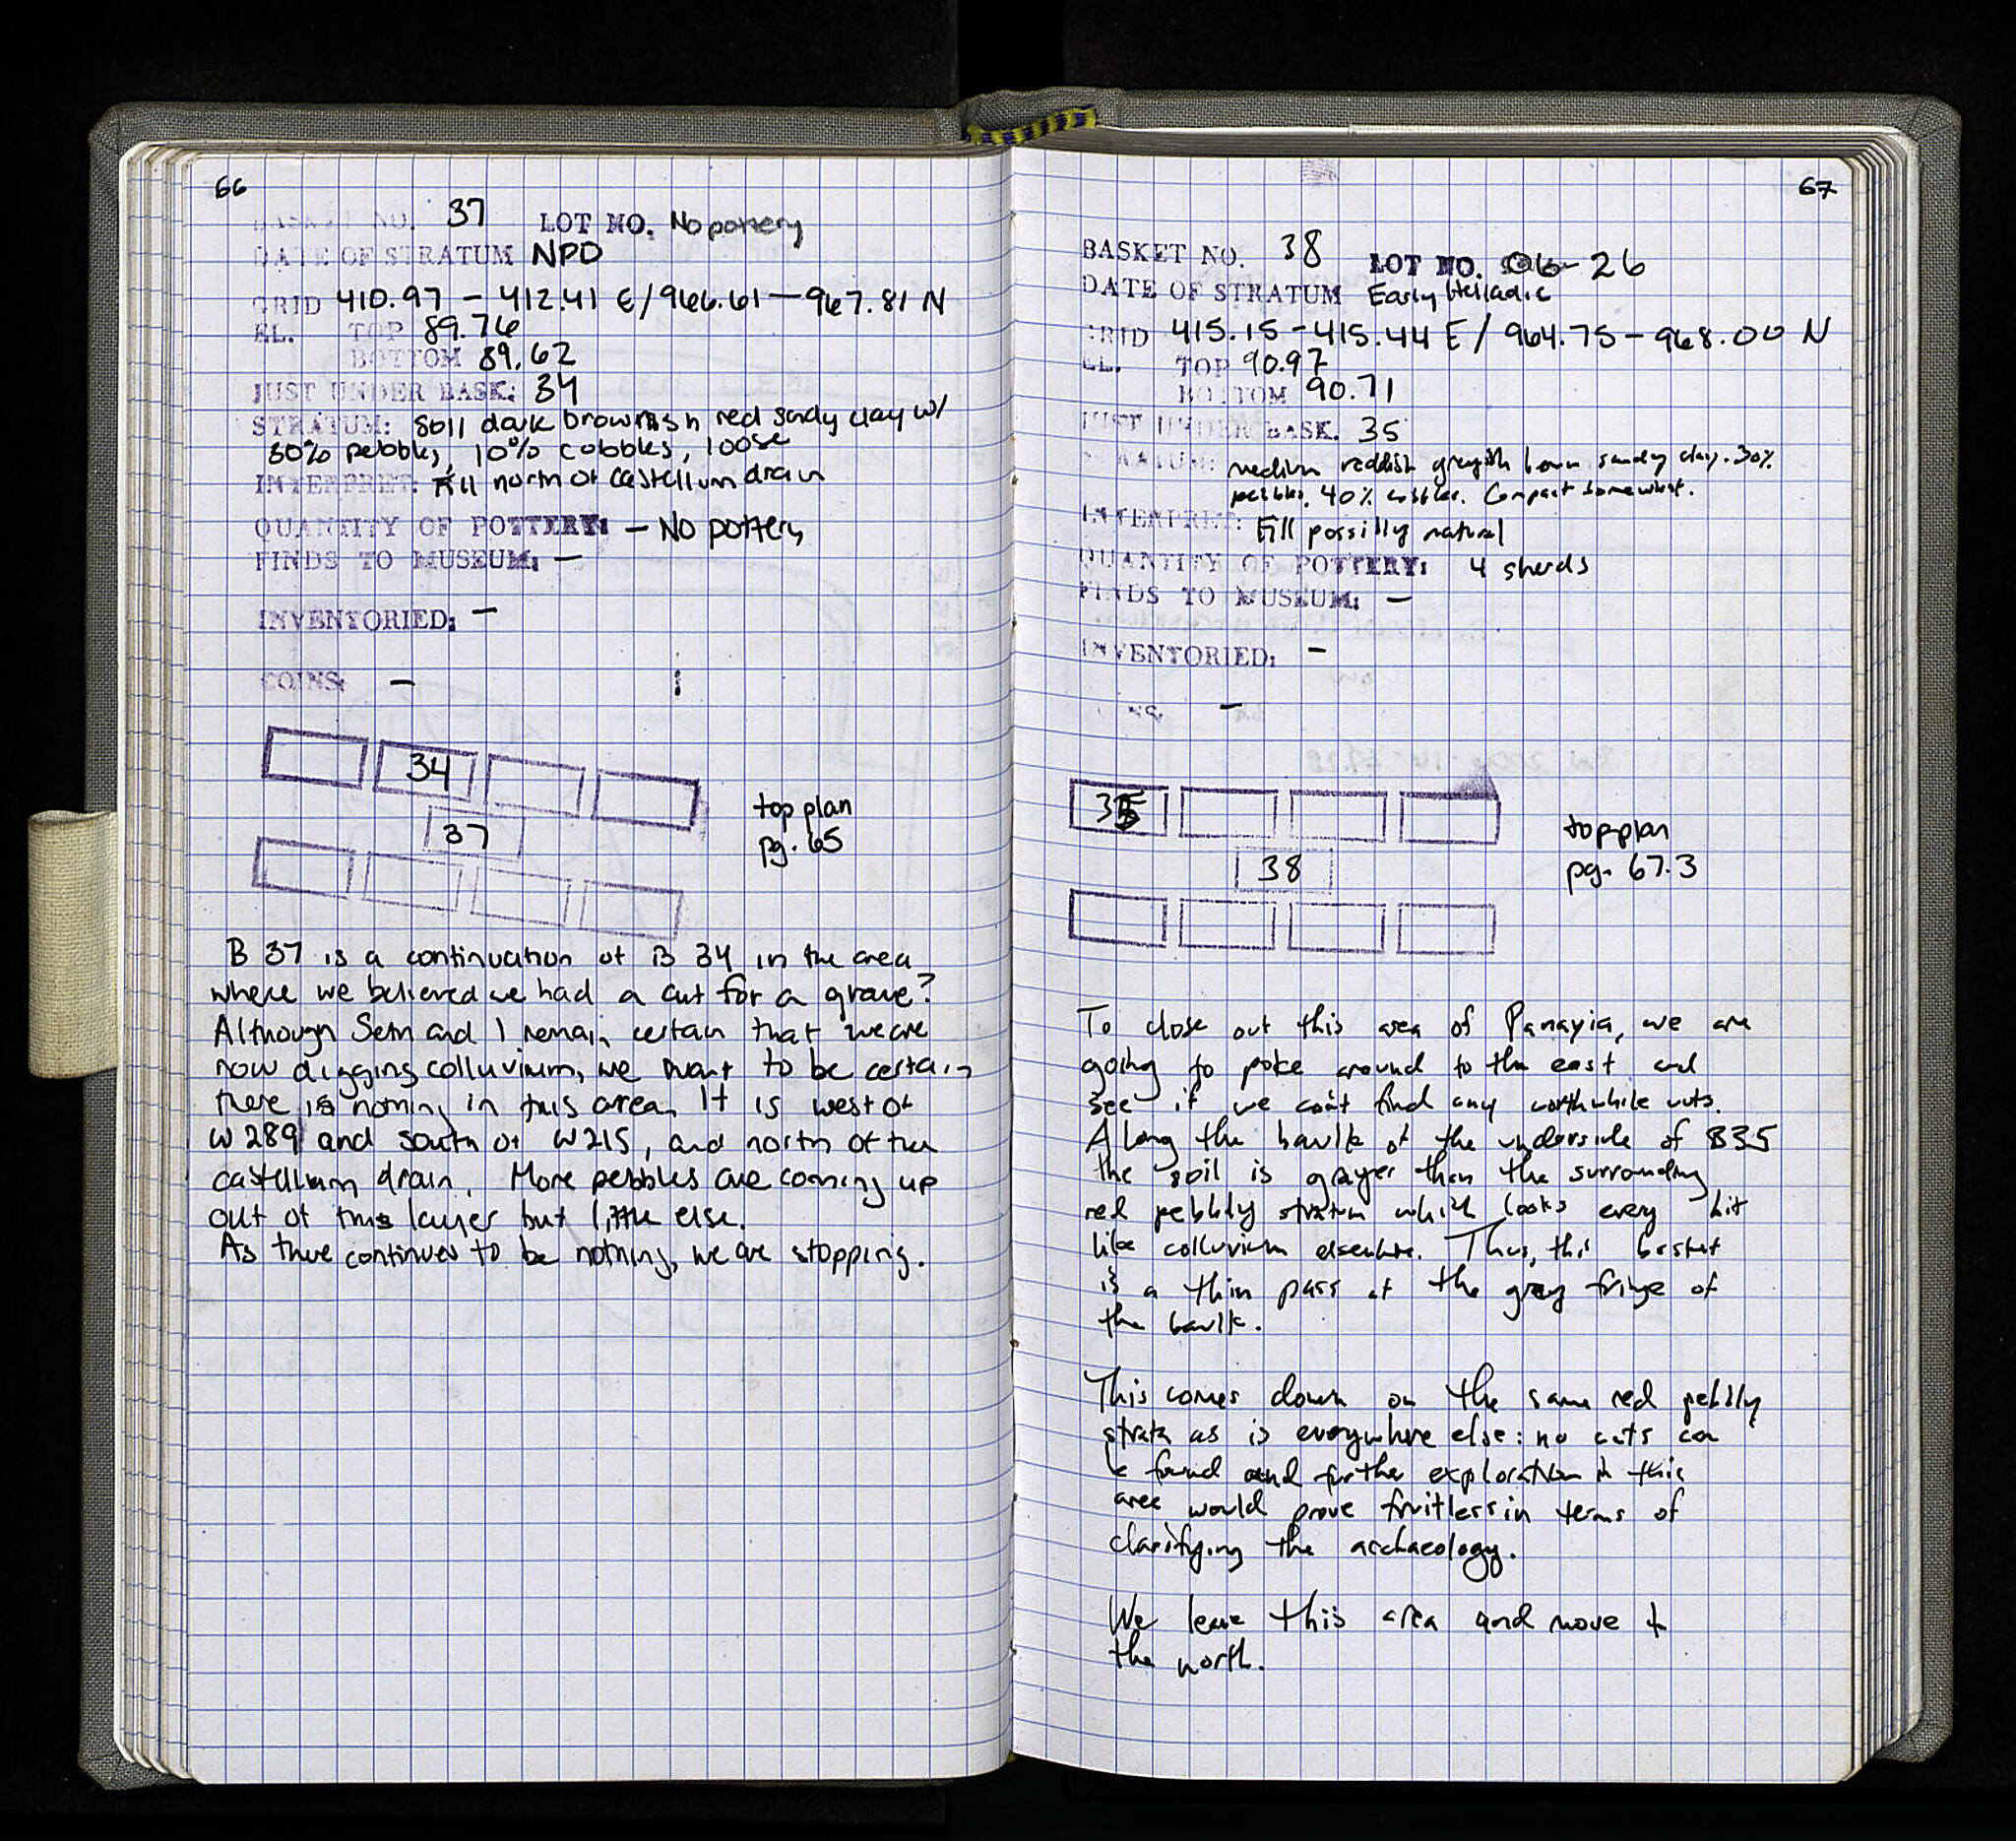 66
BASKET NO. 37 LOT NO. No pottery
DATE OF STRATUM NPD
GRID 410.97 - 412.41 E/966.61 - 967.81 N
EL. TOP 89.76
BOTTOM 89.62
JUST UNDER BASK: 34
STRATUM: Soil dark brownish red sandy clay w/
30% pebbles, 10% cobbles, loose
INTERPRET: Fill north of castellum drain
QUANTITY OF POTTERY: - No pottery
FINDS TO MUSEUM: -
INVENTORIED: -
COINS: -
34
37
top plan
pg. 65
B 37 is a continuation of B 34 in the area
where we believed we had a cut for a grave?
Although Seth and I remain certain that we are
now digging colluvium, we want to be certain
there is nothing in this area. It is west of
W 289 and south of W 215, and north of the
castellum drain. More pebbles are coming up
out of this layer but little else.
As there continues to be nothing, we are stopping.
67
BASKET NO. 38 LOT NO. 06-26
DATE OF STRATUM Early Helladic
GRID 415.15 - 415.44 E / 964.75 - 968.00 N
EL. TOP 90.97
BOTTOM 90.71
JUST UNDER BASK. 35
STRATUM: medium reddish greyish brown sandy clay. 30%
pebbles, 40% cobbles. Compact somewhat.
INTERPRET: Fill possilly natural
QUANTITY OF POTTERY: 4 sherds
FINDS TO MUSEUM: -
INVENTORIED: -
-
35
38
top plan
pg. 67.3
To close out this area of Panayia, we are
going to poke around to the east and
see if we can't find any worthwhile cuts.
Along the baulk at the underside of B35
the soil is grayer than the surrounding
red pebbly stratum which looks every bit
like colluvium elsewhere. Thus, this basket
is a thin pass at the gray fringe of
the baulk.
This comes down on the same red pebbly
strata as is everywhere else: no cuts can
be found and further exploration in this
area would prove fruitless in terms of
clarifying the archaeology.
We leave this area and move to
the north.